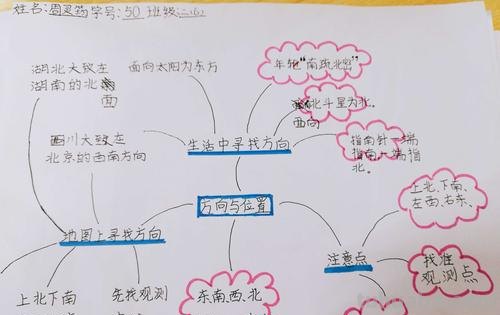 姓名:周灵筠 学号:50 班级:二(6)
湖北大致在
湖南的北
面
面向太阳为东方
年轮"南疏北密"
北斗星为北。
西向
四川大致在
北京的西南方向
生活中寻找方向
指南针一端
指南一端指
北。
方向与位置
上北、下南、
左西、右东、
地图上寻找方向
注意点
找准
观测点
上北下南
先找观测
东、南、西、北